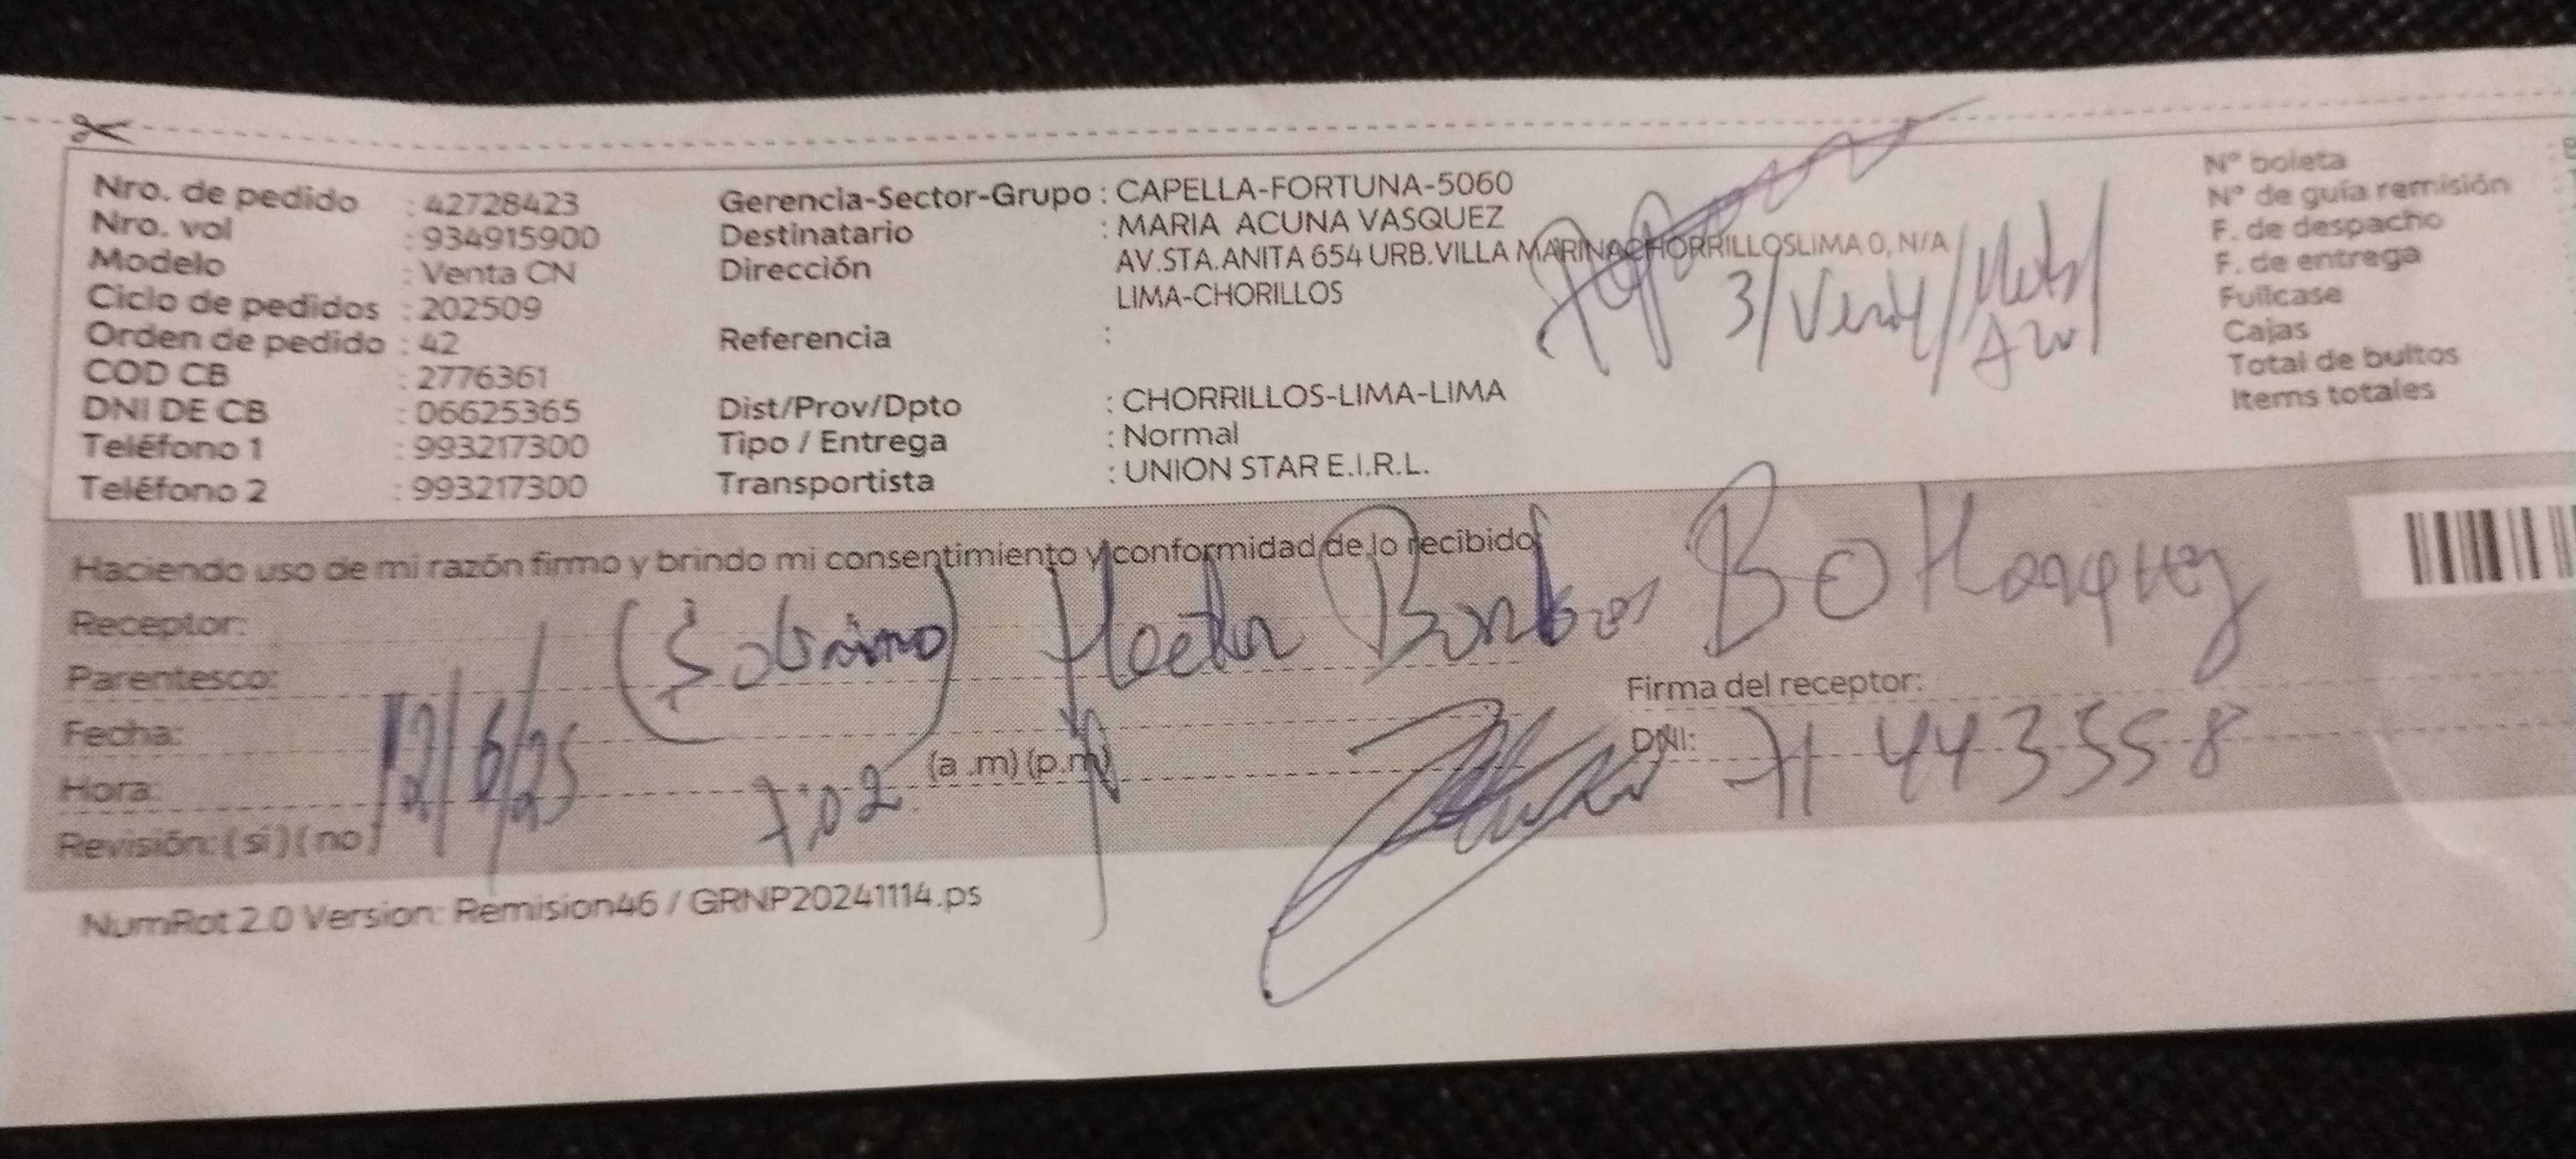 Nro. de pedido : 42728423
Nro. vol : 934915900
Modelo : Venta CN
Ciclo de pedidos : 202509
Orden de pedido : 42
COD CB : 2776361
DNI DE CB : 06625365
Teléfono 1 : 993217300
Teléfono 2 : 993217300
Gerencia-Sector-Grupo : CAPELLA-FORTUNA-5060
Destinatario : MARIA ACUNA VASQUEZ
Dirección AV.STA.ANITA 654 URB.VILLA MARINACHORRILLOSLIMA 0, N/A
LIMA-CHORILLOS
Referencia :
Dist/Prov/Dpto : CHORRILLOS-LIMA-LIMA
Tipo / Entrega : Normal
Transportista : UNION STAR E.I.R.L.
3/Verde/Metal
Azul
N° boleta
N° de guía remisión
F. de despacho
F. de entrega
Fullcase
Cajas
Total de bultos
Items totales
Haciendo uso de mi razón firmo y brindo mi consentimiento y conformidad de lo recibido
Receptor: (Sobrino) Hector
Parentesco:
Firma del receptor:
Fecha: 12/6/25
DNI: 71443558
Hora: 7:02 (a .m) (p.m)
Revisión: (si) (no)
NumRot 2.0 Version: Remision46 / GRNP20241114.ps